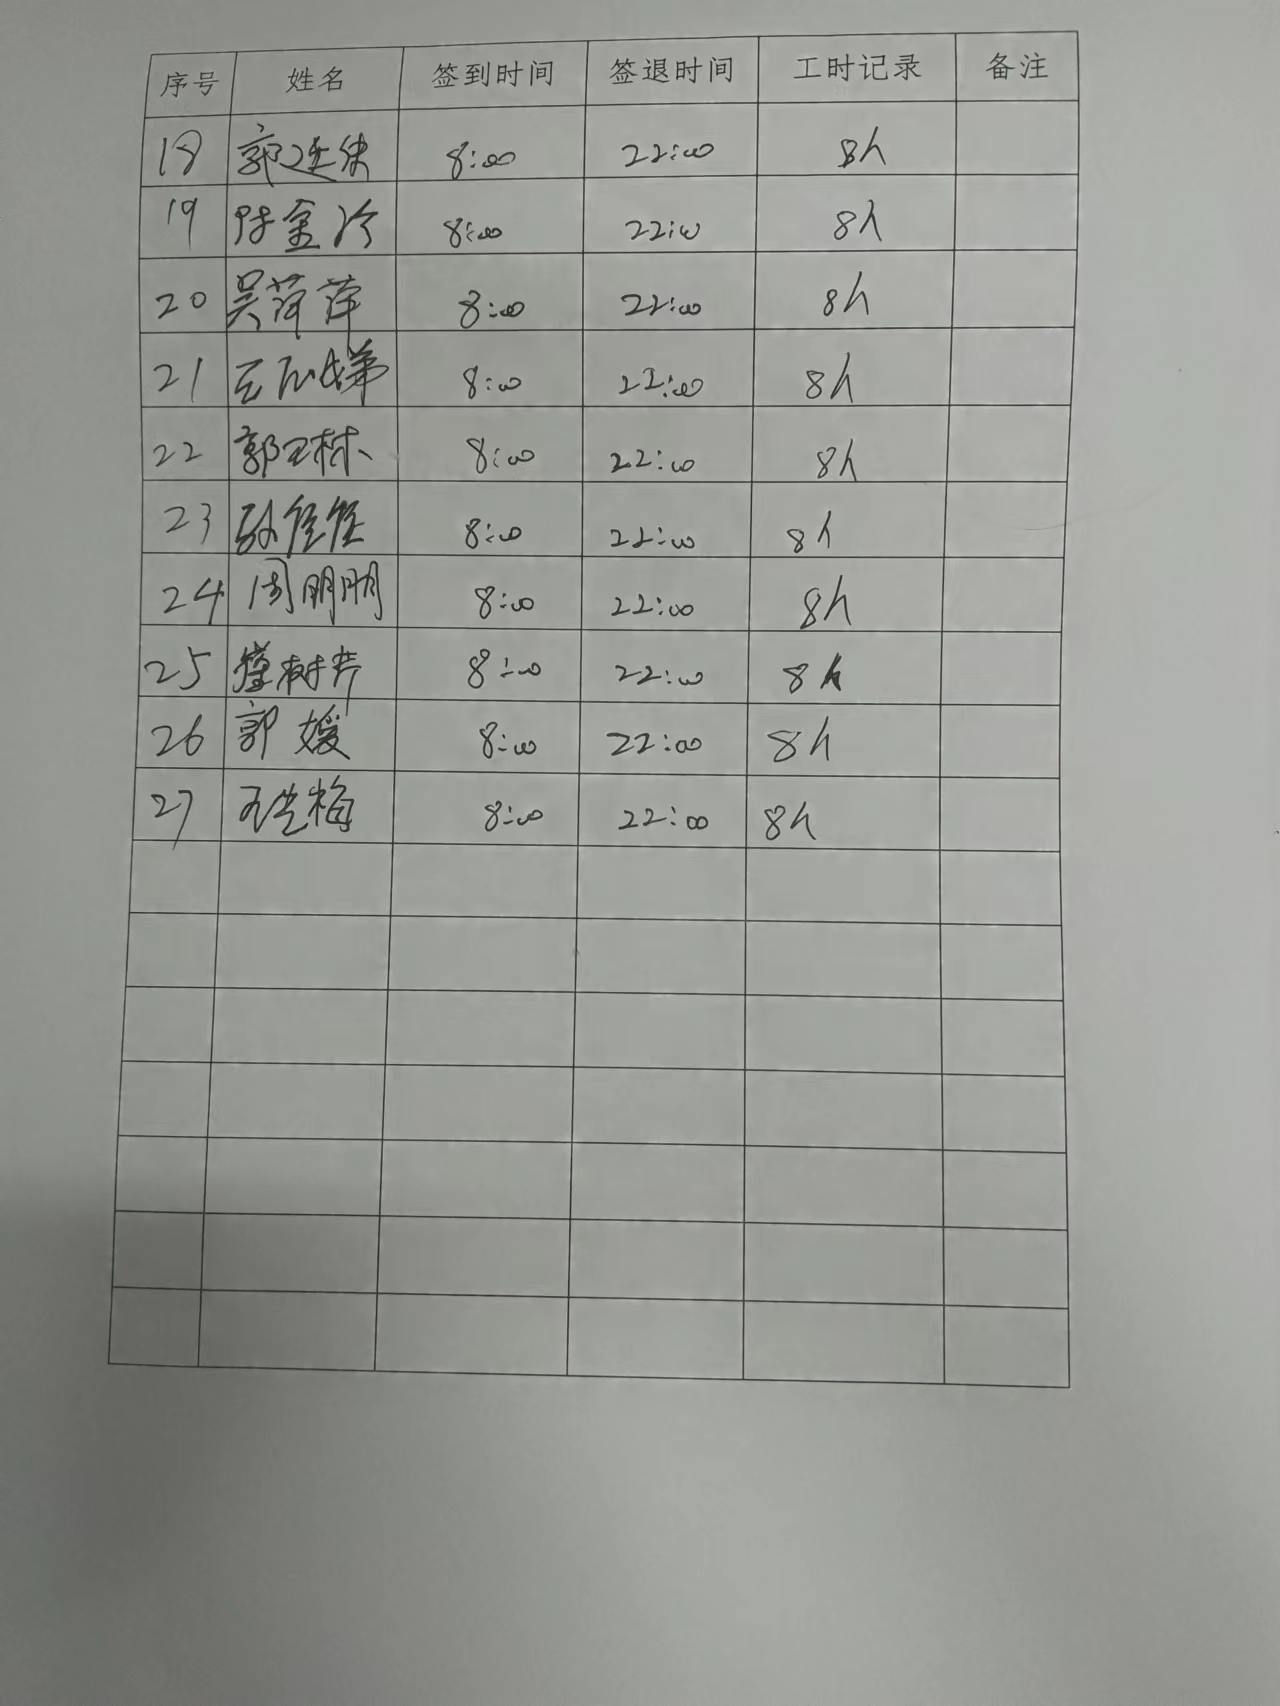 序号 姓名 签到时间 签退时间 工时记录 备注
18 郭 8:00 22:00 8h
19 陈金 8:00 22:00 8h
20 吴萍萍 8:00 22:00 8h
21 8:00 22:00 8h
22 郭 8:00 22:00 8h
23 8:00 22:00 8h
24 周明明 8:00 22:00 8h
25 树 8:00 22:00 8h
26 郭媛 8:00 22:00 8h
27 梅 8:00 22:00 8h